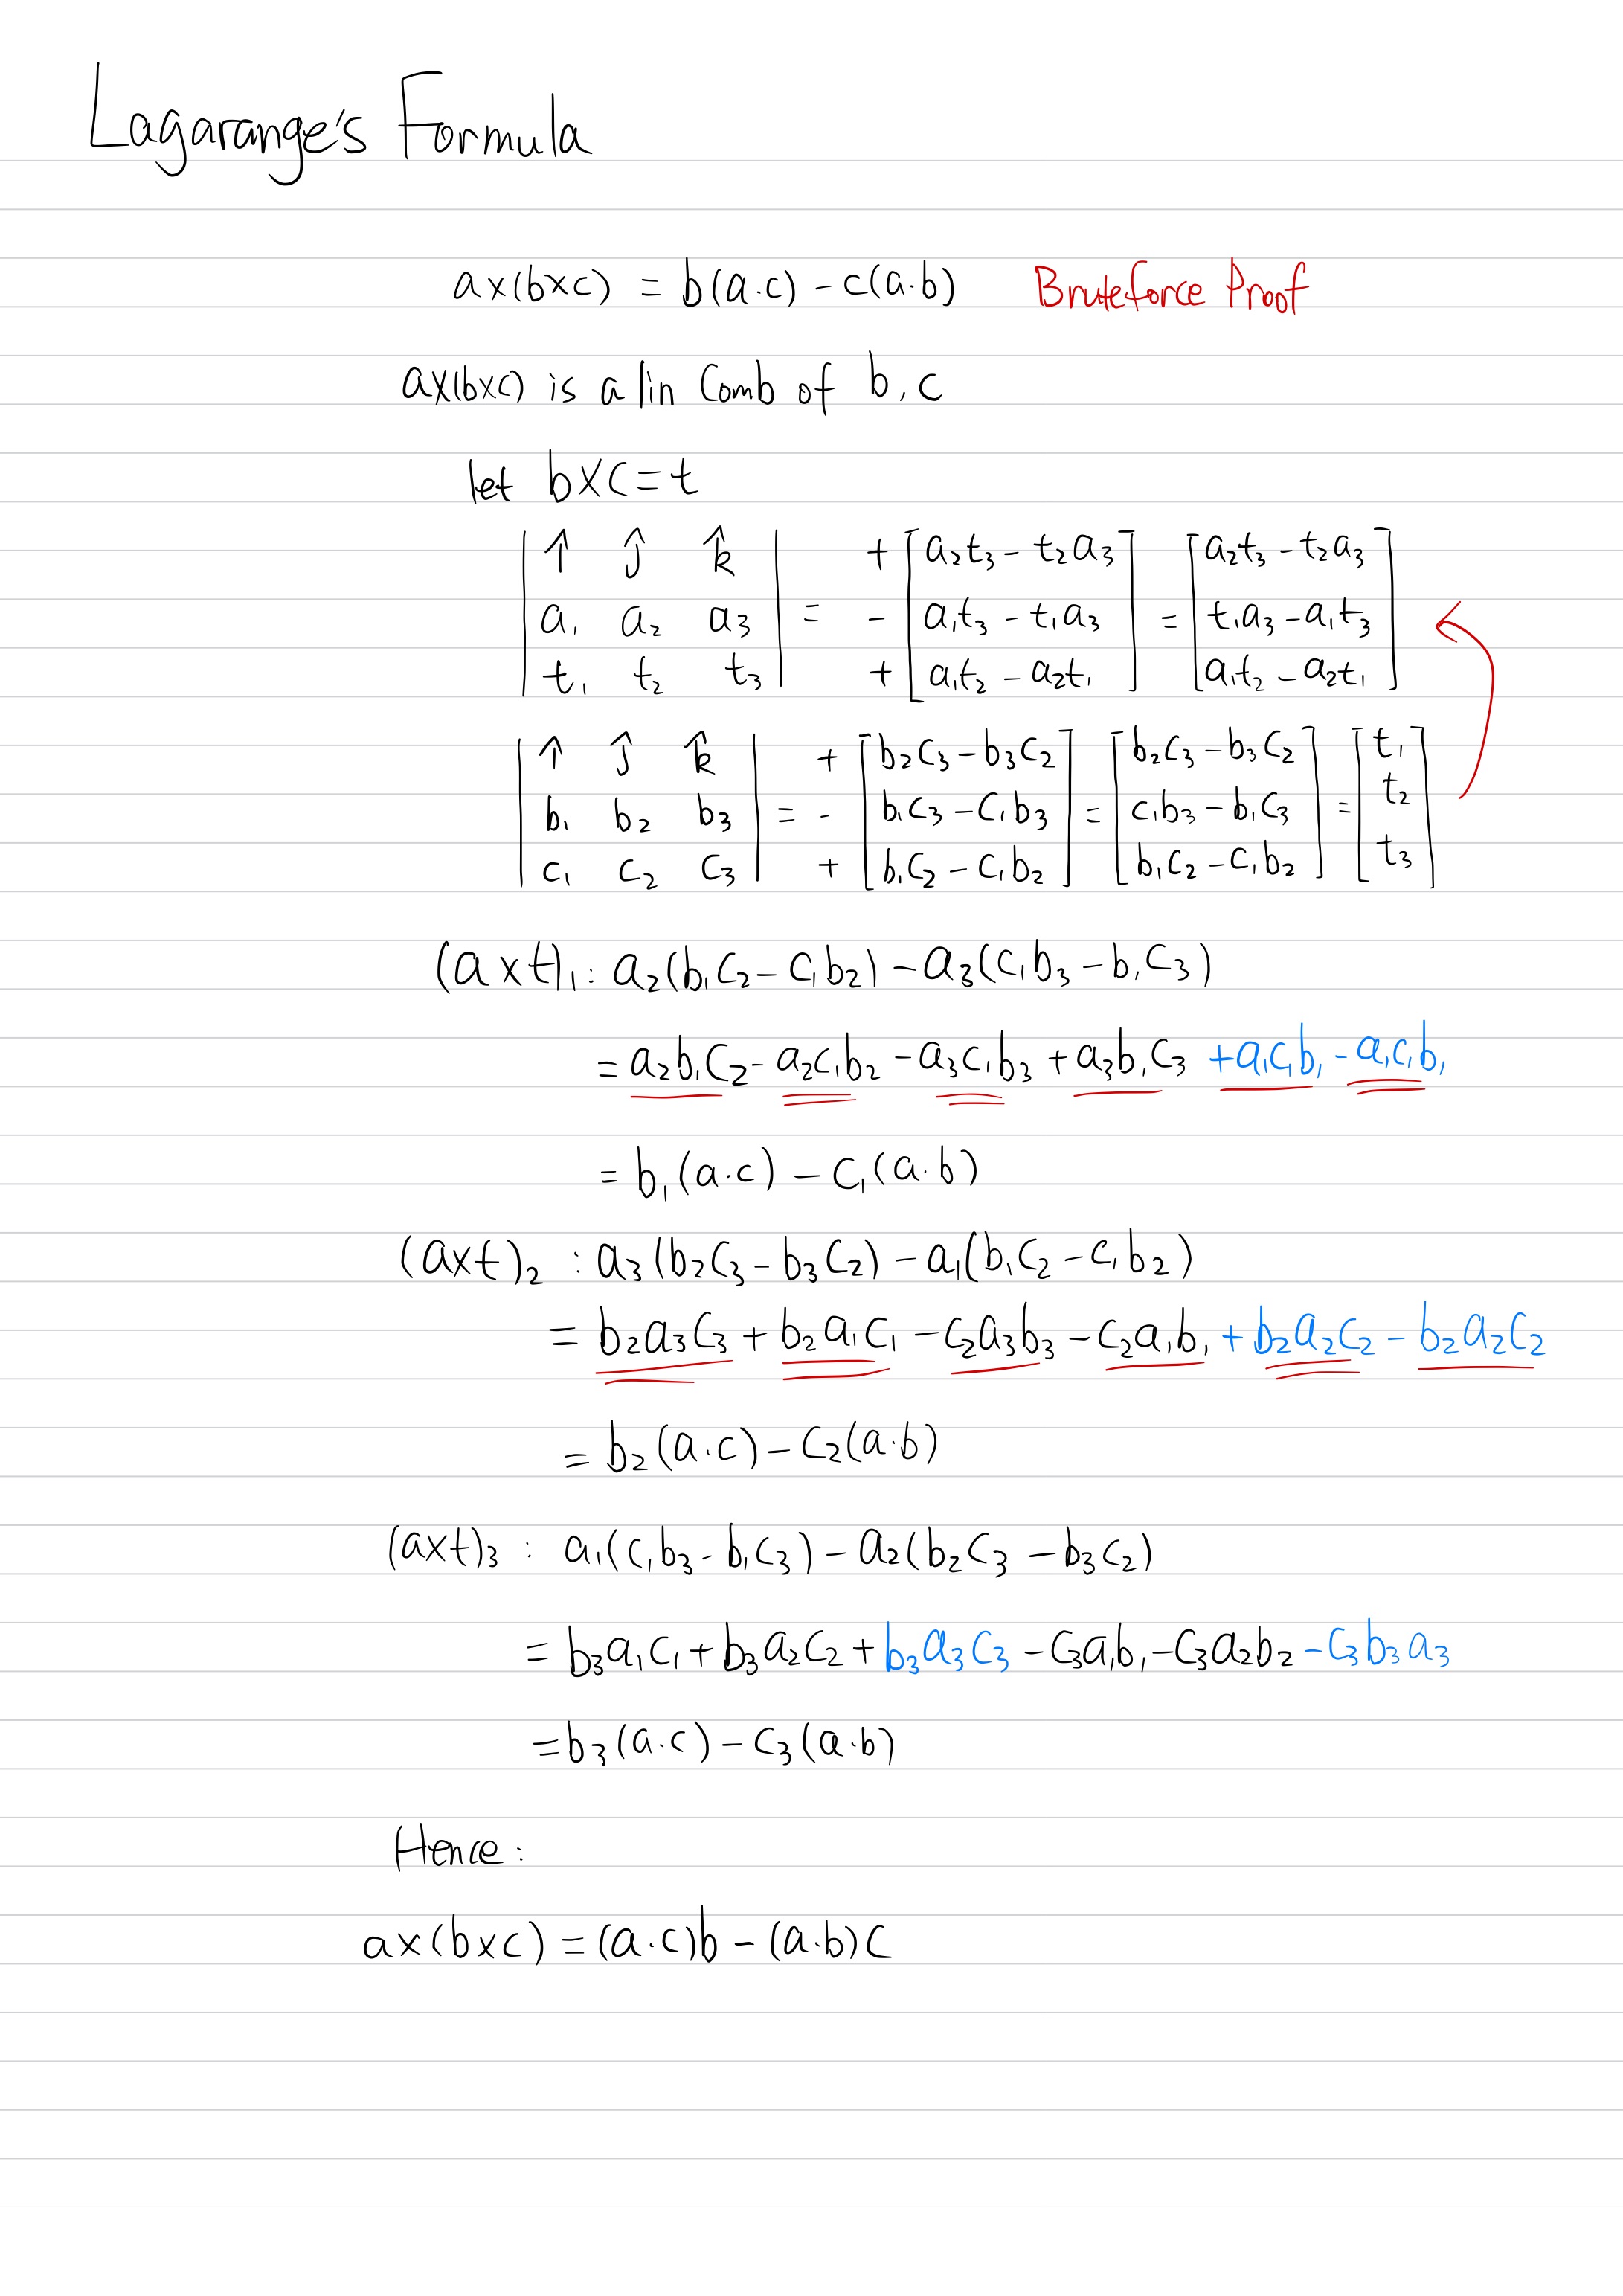 Lagarange's Formula
a×(b×c) = b(a·c) - c(a·b) Bruteforce Proof
a×(b×c) is a lin Comb of b, c
let b×c = t
| î ĵ k̂ | + [ a₂t₃ - t₂a₃ ] [ a₂t₃ - t₂a₃ ]
| a₁ a₂ a₃ | = - [ a₁t₃ - t₁a₃ ] = [ t₁a₃ - a₁t₃ ]
| t₁ t₂ t₃ | + [ a₁t₂ - a₂t₁ ] [ a₁t₂ - a₂t₁ ]
| î ĵ k̂ | + [ b₂c₃ - b₃c₂ ] [ b₂c₃ - b₃c₂ ] [ t₁ ]
| b₁ b₂ b₃ | = - [ b₁c₃ - c₁b₃ ] = [ c₁b₃ - b₁c₃ ] = [ t₂ ]
| c₁ c₂ c₃ | + [ b₁c₂ - c₁b₂ ] [ b₁c₂ - c₁b₂ ] [ t₃ ]
(a×t)₁ : a₂(b₁c₂ - c₁b₂) - a₃(c₁b₃ - b₁c₃)
= a₂b₁c₂ - a₂c₁b₂ - a₃c₁b₃ + a₃b₁c₃ + a₁c₁b₁ - a₁c₁b₁
= b₁(a·c) - c₁(a·b)
(a×t)₂ : a₃(b₂c₃ - b₃c₂) - a₁(b₁c₂ - c₁b₂)
= b₂a₃c₃ + b₂a₁c₁ - c₂a₃b₃ - c₂a₁b₁ + b₂a₂c₂ - b₂a₂c₂
= b₂(a·c) - c₂(a·b)
(a×t)₃ : a₁(c₁b₃ - b₁c₃) - a₂(b₂c₃ - b₃c₂)
= b₃a₁c₁ + b₃a₂c₂ + b₃a₃c₃ - c₃a₁b₁ - c₃a₂b₂ - c₃b₃a₃
= b₃(a·c) - c₃(a·b)
Hence :
a×(b×c) = (a·c)b - (a·b)c